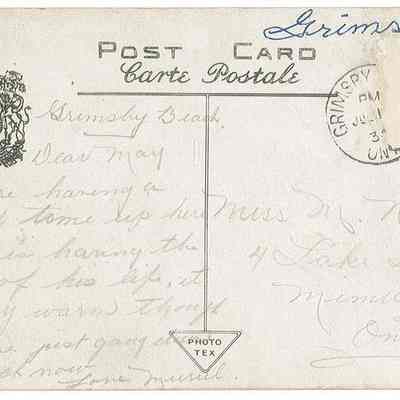 Grims
POST CARD
Carte Postale
GRIMSBY
PM
JUL 1
3
ONT
Grimsby Beach
Dear May
re having a
d time up here
is having the
of his life, it
warm though
just going
now
Love Muriel
Miss M.
4 Lake
Mimi
On
PHOTO
TEX